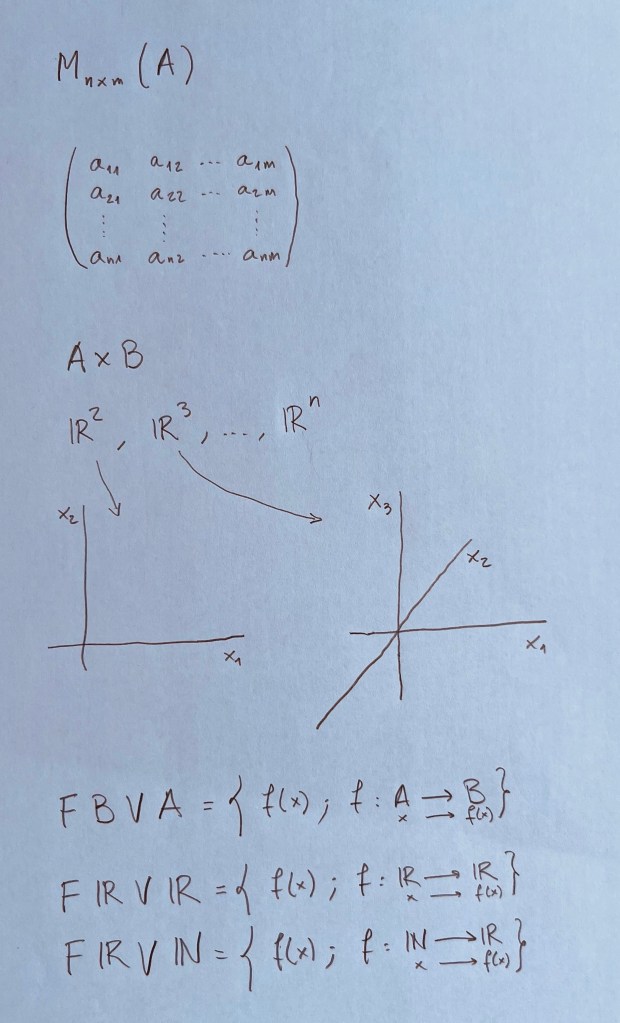 M_{n×m} (A)
( a_{11} a_{12} ... a_{1m}
a_{21} a_{22} ... a_{2m}
⋮ ⋮ ⋮
a_{n1} a_{n2} .... a_{nm} )
A × B
ℝ², ℝ³, ..., ℝⁿ
x₂ x₁
x₃ x₂ x₁
F B V A = { f(x) ; f : A → B }
x → f(x)
F ℝ V ℝ = { f(x) ; f : ℝ → ℝ }
x → f(x)
F ℝ V ℕ = { f(x) ; f : ℕ → ℝ }
x → f(x)